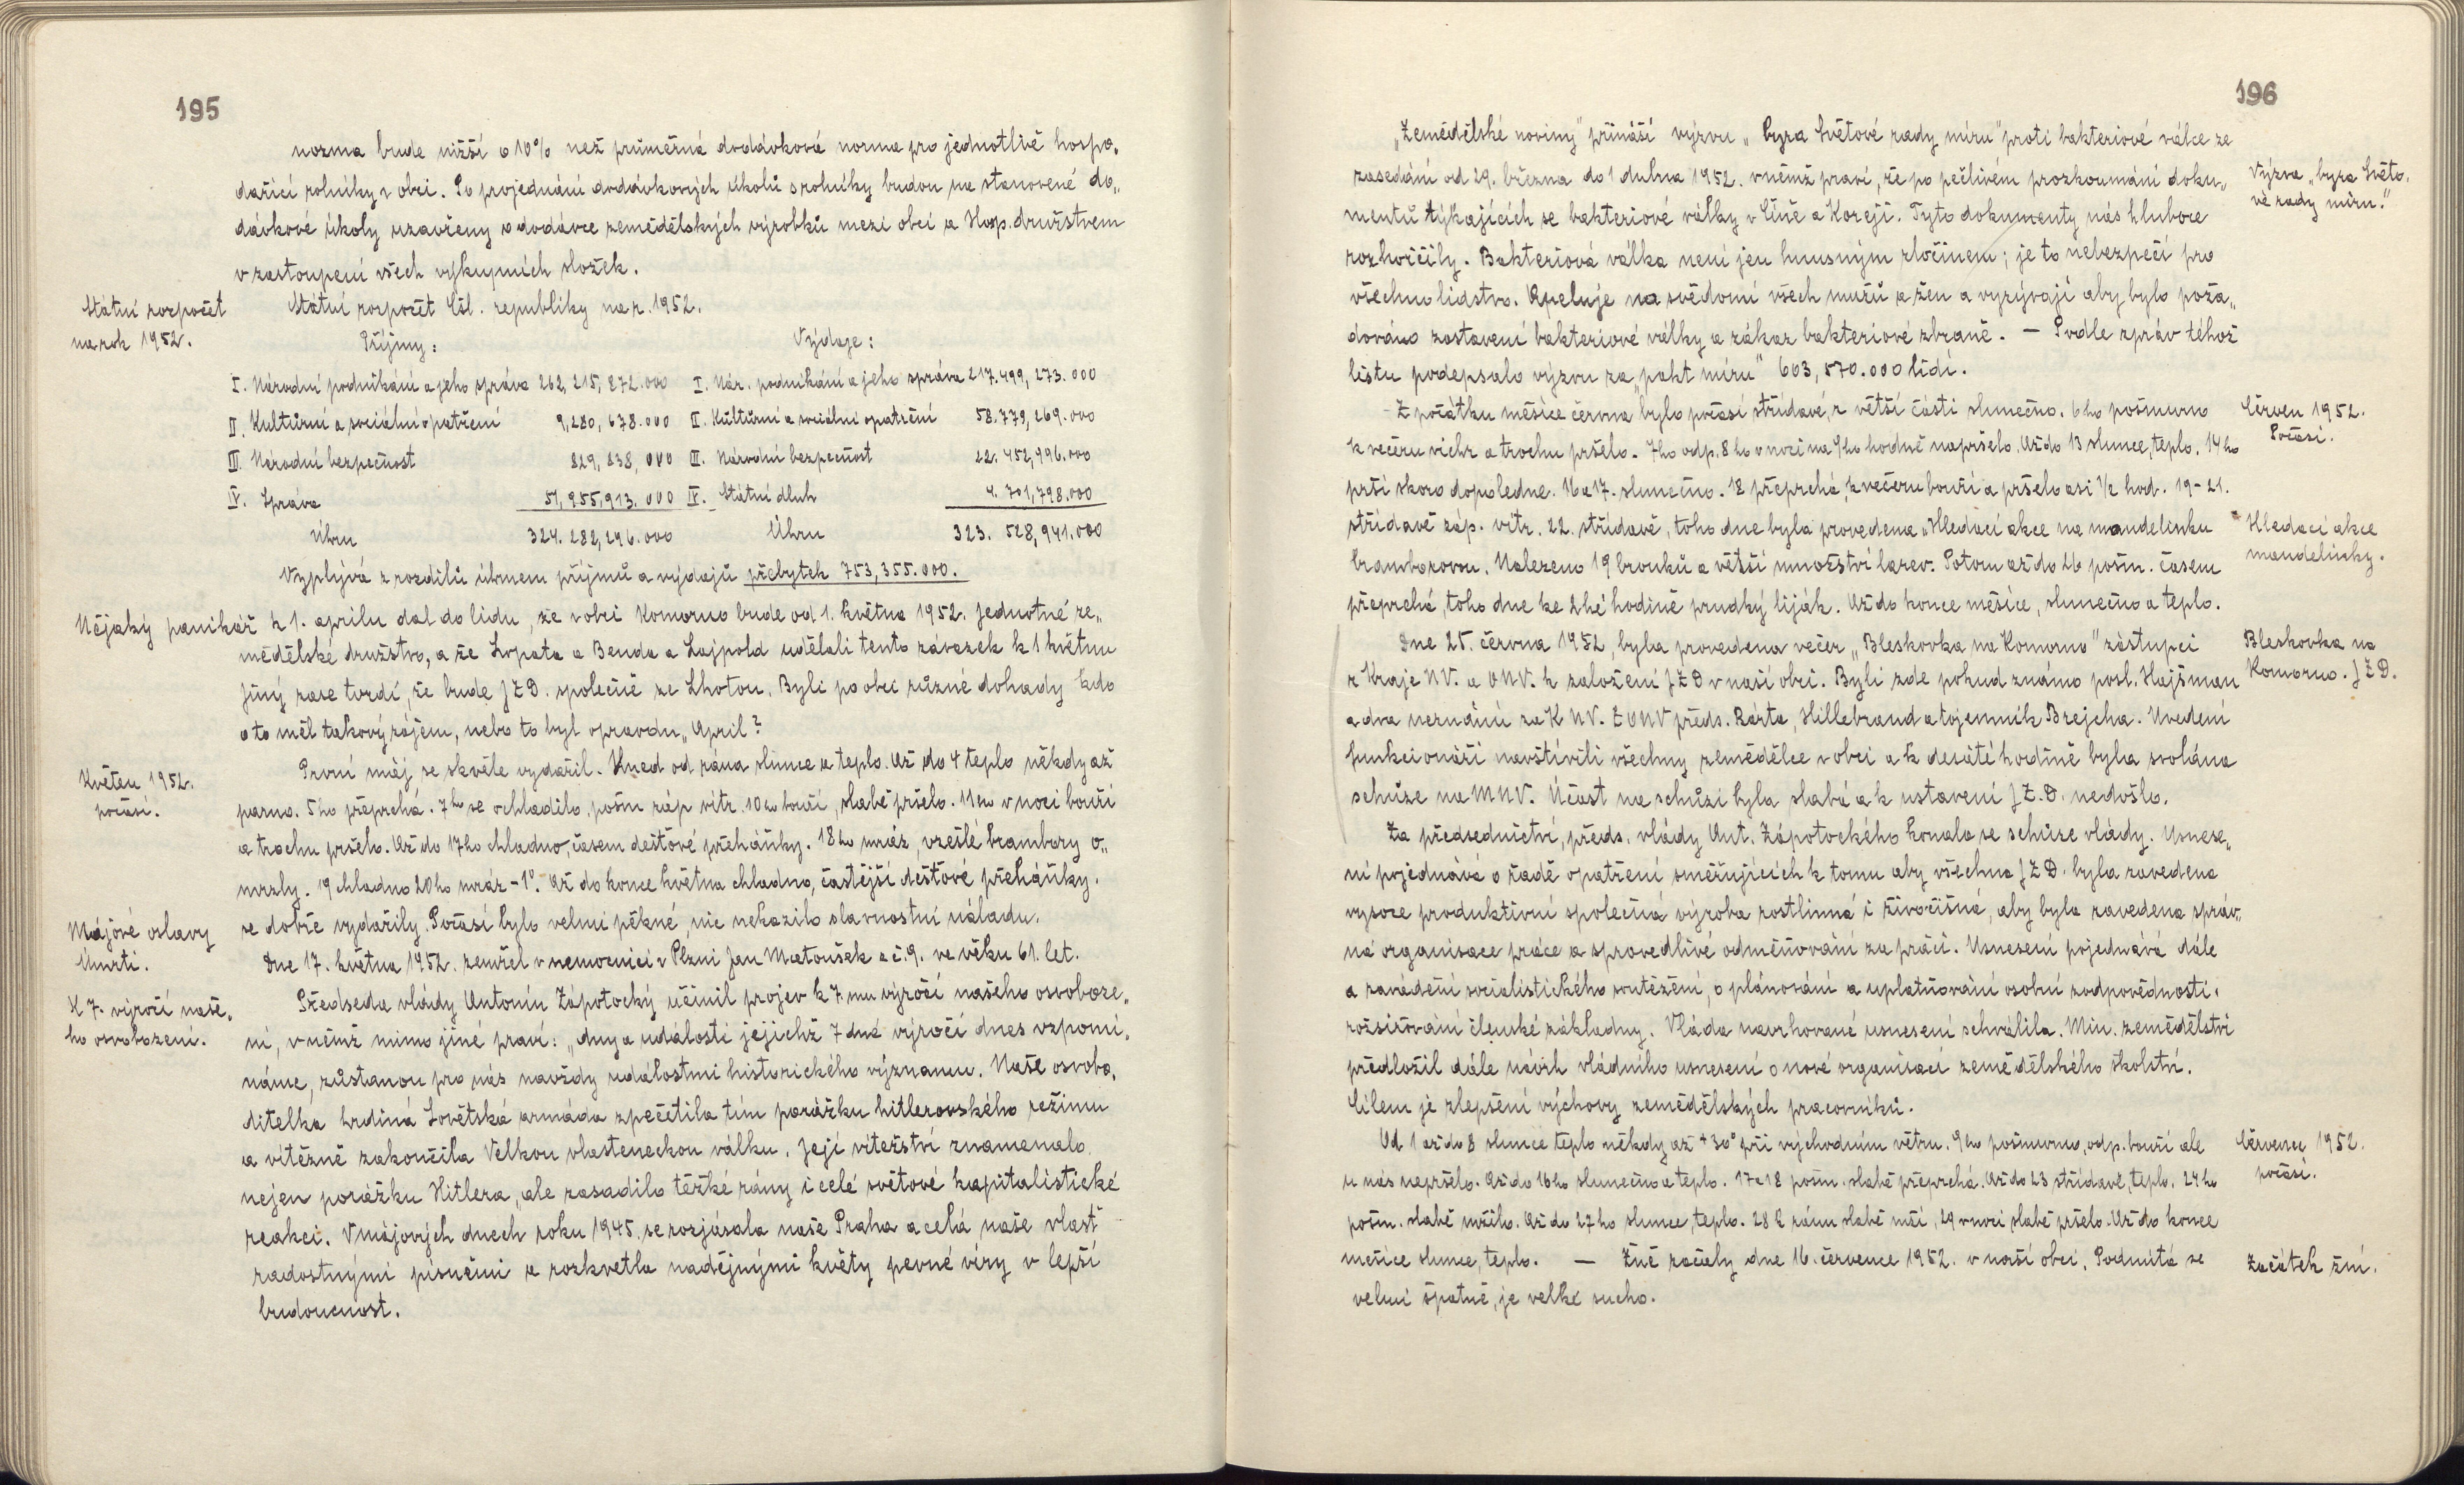 195
norma bude nižší o 10% než průměrná dodávková norma pro jednotlivě hospo„
dařící rolníky v obci. Po projednání dodávkových úkolů s rolníky budou na stanovené do„
dávkové úkoly uzavřeny o dodávce zemědělských výrobků mezi obcí a Hosp. družstvem
v zastoupení všech výkupních složek.
Státní rozpočet
na rok 1952.
Státní rozpočet Čsl. republiky na r. 1952.
Příjmy: Výdaje:
I. Národní podnikání a jeho správa 262, 215, 872.000 I. Nár. podnikání a jeho správa 217.499, 273.000
II. Kulturní a sociální opatření 9,280, 678.000 II. Kulturní a sociální opatření 58.779,269.000
III. Národní bezpečnost 829, 838, 000 III. Národní bezpečnost 22. 452,996.000
IV. Správa 51,955,913.000 IV. Státní dluh 4. 701,798.000
Úhrn 324. 282,296.000 Úhrn 323. 528,941.000
Vyplývá z rozdílů úhrnem příjmů a výdajů přebytek 753,355.000.
Nějaký panikář k 1. aprilu dal do lidu, že v obci Komorno bude od 1. května 1952. Jednotné ze„
mědělské družstvo, a že Lopata a Benda a Lajpold udělali tento závazek k 1 květnu
Jiný zase tvrdí, že bude JZD. společně ze Lhotou. Byli po obci různé dohady kdo
o to měl takový zájem, nebo to byl opravdu „April?
Květen 1952.
počasí.
První máj se skvěle vydařil. Hned od rána slunce a teplo. Až do 4 teplo někdy až
parno. 5ho přeprchá. 7ho se ochladilo, pošm záp vítr. 10ho bouří, slabě pršelo. 11ho v noci bouří
a trochu pršelo. Až do 17ho chladno, časem dešťové přeháňky. 18ho mráz, vzešlé brambory o„
mrzly. 19 chladno 20ho mráz -1°. Až do konce května chladno, častější dešťové přeháňky.
Májové oslavy
se dobře vydařily. Počasí bylo velmi pěkné, nic nekazilo slavnostní náladu.
Úmrtí.
Dne 17. května 1952. zemřel v nemocnici v Plzni Jan Matoušek z č. 9. ve věku 61. let.
K 7. výročí naše„
ho osvobození.
Předseda vlády Antonín Zápotocký učinil projev k 7.mu výročí našeho osvoboze„
ní, v němž mimo jiné praví: „dny a události jejichž 7dmé výročí dnes vzpomí„
náme, zůstanou pro nás navždy událostmi historického významu. Naše osvobo„
ditelka hrdiná Sovětská armáda zpečetila tím porážku hitlerovského režimu
a vítězně zakončila Velkou vlasteneckou válku. Její vítežství znamenalo
nejen porážku Hitlera, ale zasadilo těžké rány i celé světové kapitalistické
reakci. V májových dnech roku 1945. se rozjásala naše Praha a celá naše vlasť
radostnými písněmi a rozkvetla nadějnými květy pevné víry v lepší
budoucnost.
196
„Zemědělské noviny" přináší výzvu „ byra Světové rady míru" proti bakteriové válce ze
zasedání od 29. března do 1 dubna 1952. v němž praví, že po pečlivém prozkoumání doku„
mentů týkajících se bakteriové války v Číně a Koreji. Tyto dokumenty nás hluboce
rozhořčily. Bakteriová válka není jen hnusným zločinem; je to nebezpečí pro
všechno lidstvo. Apeluje na svědomí všech mužů a žen a vyzývají aby bylo poža„
dováno zastavení bakteriové války a zákaz bakteriové zbraně. — Podle zpráv téhož
listu podepsalo výzvu za „pakt míru" 603,570.000 lidí.
Výzva „byra Světo„
vé rady míru."
Z počátku měsíce června bylo počasí střídavé, z větší části slunečno. 6ho pošmurno
k večeru vichr a trochu pršelo. 7ho odp. 8ho v noci na 9ho hodně napršelo. Až do 13 slunce, teplo. 14ho
prší skoro dopoledne. 16 a 17. slunečno. 18 přeprchá, k večeru bouří a pršelo asi 1/2 hod. 19-21.
střídavě záp. vítr. 22. střídavě, toho dne byla provedena „Hledací akce na mandelinku
bramborovou. Nalezeno 19 brouků a větší množství larev. Potom až do 26 pošm. časem
přeprchá, toho dne ke 2hé hodině prudký liják. Až do konce měsíce, slunečno a teplo.
Červen 1952.
Počasí.
Hledací akce
mandelinky.
Dne 25. června 1952, byla provedena večer „Bleskovka na Komorno" zástupci
z Kraje NV. a ONV. k založení JZD v naší obci. Byli zde pokud známo posl. Hajšman
a dva neznámí za K NV. Z ONV předs. Bárta, Hillebrand a tajemník Brejcha. Uvedení
funkcionáři navštívili všechny zemědělce v obci a k desáté hodině byla svolána
schůze na MNV. Účast na schůzi byla slabá a k ustavení JZ.D. nedošlo.
Bleskovka na
Komorno. JZD.
Za předsednictví, předs. vlády Ant. Zápotockého konala se schůze vlády. Usnese„
ní pojednává o řadě opatření směřujících k tomu aby všechna JZD. byla zavedena
vysoce produktivní společná výroba rostlinná i živočišná, aby byla zavedena správ„
ná organisace práce a spravedlivé odměňování za práci. Usnesení pojednává dále
o zavádění socialistického soutěžení, o plánování a uplatňování osobní zodpovědnosti,
rozšiřování členské základny. Vláda navrhované usnesení schválila. Min. zemědělství
předložil dále návrh vládního usnesení o nové organisaci zemědělského školství.
Cílem je zlepšení výchovy zemědělských pracovníků.
Od 1 až do 8 slunce teplo někdy až +30° při východním větru. 9ho pošmurno, odp. bouří ale
u nás nepršelo. Až do 16ho slunečno a teplo. 17 a 18 pošm. slabě přeprchá. Až do 23 střídavě, teplo. 24ho
pošm. slabě mžilo. Až do 27ho slunce, teplo. 28 k ránu slabě mží, 29 v noci slabě pršelo. Až do konce
měsíce slunce, teplo. — Žně začaly dne 16. července 1952. v naší obci. Podmítá se
velmi špatně, je velké sucho.
Červenec 1952.
počasí.
Začátek žní.